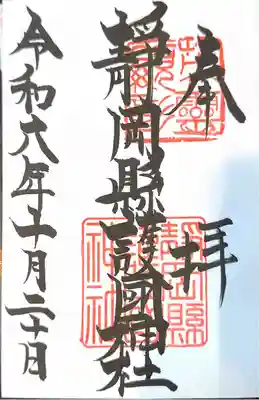 奉拝
靜岡縣護國神社
令和六年十月二十日
靜岡縣
護國
神社